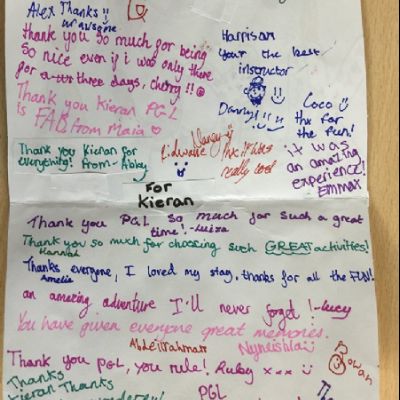 Alex Thanks!!
thank you so much for being
so nice even if i was only there
for a three days, cherry!! ☺
Thank you Kieran PGL
is FAB from Maia ♡
Harrison
your the best
instructor
Danny!!
Coco
thx for
the fun!
Thank you Kieran for
everything! from-Abbey
Nancy
really cool
it was
an amazing
experience!
Emma x
For
Kieran
Thank you PGL so much for such a great
time! -Luiza
Thank you so much for choosing such GREAT activities!
Hannah
Thanks everyone, I loved my stay, thanks for all the FUN!
Amelia
an amazing adventure I'll never forget! -Lucy
You have given everyone great memories.
Nyneishia
Abdelrahman
Rowan
Thank you PGL, you rule! Ruby xxx
Thanks
Kieran Thanks
PGL